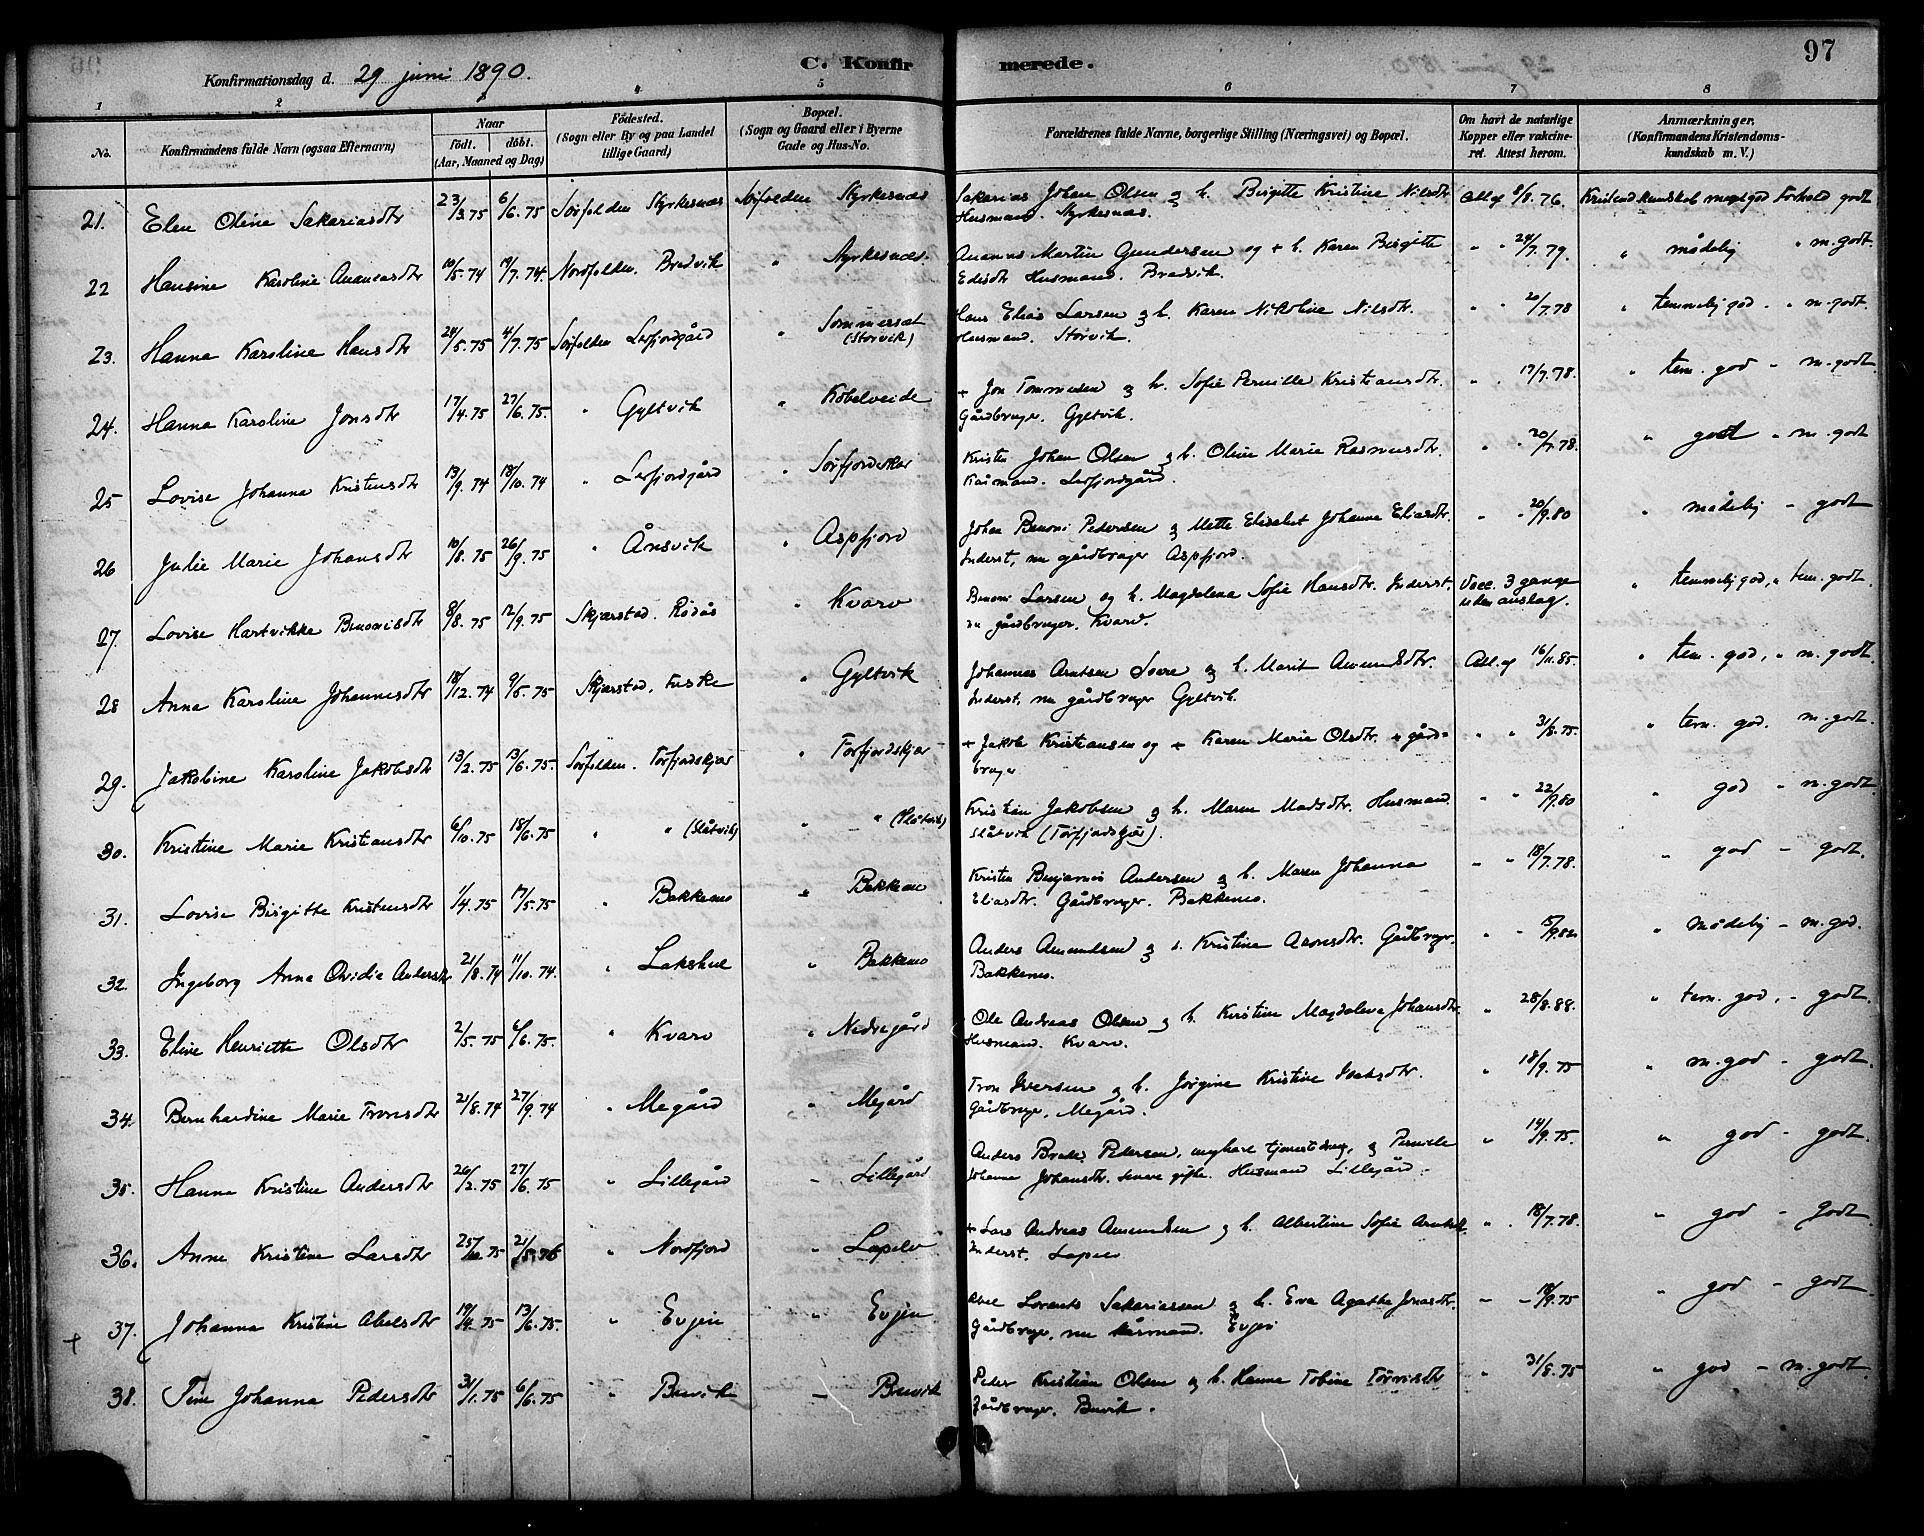 97
Konfirmationsdag d. 29 juni 1890.
C. Konfirmerede.
1 2 3 4 5 6 7 8
No.
Konfirmandens fulde Navn (ogsaa Efternavn)
Naar
födt. döbt.
(Aar, Maaned og Dag)
Födested.
(Sogn eller By og paa Landet
tillige Gaard)
Bopæl.
(Sogn og Gaard eller i Byerne
Gade og Hus-No.
Forældrenes fulde Navne, borgerlige Stilling (Næringsvei) og Bopæl.
Om havt de naturlige
Kopper eller vakcine-
ret. Attest herom.
Anmærkninger,
(Konfirmandens Kristendoms-
kundskab m. V.)
21. Elen Oline Sakariasdtr 23/3.75 6/6.75 Sørfolden Styrkesnæs Sørfolden Styrkesnæs Sakarias Johan Olsen og h. Birgitte Kristine Nilsdtr Att. af 8/8.76. Kristendkunskab meget god Forhold godt
Husmand. Styrkesnæs.
22 Hansine Karoline Ananiasdtr 10/5.74 19/7.74. Nordfolden. Bredvik " Styrkesnæs. Ananias Martin Gundersen og + h. Karen Birgitte " " 24/7.79. " mådelig " m. godt
Edisdtr Husmand. Bredvik.
23. Hanna Karoline Hansdtr 24/5.75 4/7.75 Sørfolden Lerfjordgård " Sommerset (Storvik) Hans Elias Larsen og h. Karen Nikoline Nilsdtr. " " 20/7.78 " temmelig god. " m. godt.
Husmand. Storvik.
24. Hanna Karoline Jonsdtr 17/4.75 27/6.75 " Gyltvik " Kobelveide + Jon Tommesen og h. Sofie Pernille Kristiansdtr. " " 17/7.78. " tem. god - m. godt.
Gårdbruger. Gyltvik.
25 Lovise Johanna Kristensdtr 13/9.74 18/10.74 " Lerfjordgård " Sørfjordskar Kristen Johan Olsen og h. Oline Marie Rasmusdtr. " " 20/7.78. " godt " m. godt
Kårmand. Lerfjordgård.
26 Julie Marie Johansdtr 10/8.75 26/9.75 " Ånsvik " Aspfjord Johan Benoni Pedersen og Mette Elisabet Johanne Eliasdtr. " " 20/9.80 " mådelig - godt
Inderst, nu gårdbruger Aspfjord.
27. Lovise Hartvikke Benonisdtr 8/8.75 12/9.75 Skjærstad. Røsås " Kvarv Benoni Larsen og h. Magdalena Sofie Hansdtr. Inderst, Vacc. 3 gange " temmelig god, " tem. godt.
nu gårdbruger. Kvarv. uden anslag.
28 Anna Karoline Johannesdtr 18/12.74 9/5.75 Skjærstad. Fuske " Gyltvik Johannes Arntsen Sore og h. Marit Amundsdtr. Att. af 16/11.85. " tem. god, " m. godt.
Inderst, nu gårdbruger Gyltvik.
29. Jakobine Karoline Jakobsdtr 13/2.75 13/6.75. Sørfolden. Torfjordskjær " Torfjordskjær + Jakob Kristiansen og + Karen Marie Olsdtr. gård- " " 31/8.75. " tem. god. m. godt.
bruger
30. Kristine Marie Kristiansdtr 6/10.75 18/6.75 " " (Slåtvik) " " (Slåtvik) Kristian Jakobsen og h. Maren Madsdtr. Husmand. " " 22/9.80 " god " m. godt.
Slåtvik (Torfjordskjær).
31. Lovise Birgitte Kristensdtr 1/4.75 17/5.75 " Bakkemo " Bakkemo Kristen Benjamin Andersen og h. Maren Johanna " " 18/7.78. " god - godt.
Eliasdtr. Gårdbruger. Bakkemo.
32. Ingeborg Anna Ovidie Andersdtr 21/8.74 11/10.74. " Lakshul " Bakkemo Anders Amundsen og h. Kristine Aronsdtr. Gårdbruger. " - 15/9.82. " mådelig - m. god.
Bakkemo.
33. Eline Henriette Olsdtr 2/5.75 6/6.75. " Kvarv " Nedregård Ole Andreas Olsen og h. Kirstine Magdalena Johansdtr. " 28/8.88. " tem. god, - godt.
Husmand. Kvarv.
34. Bernhardine Marie Tronsdtr 21/8.74 27/9.74 " Megård " Megård Tron Iversen og h. Jørgine Kristine Isaksdtr. " 18/9.75 " m. god - godt.
Gårdbruger, Megård.
35. Hanna Kristine Andersdtr 26/2.75 27/6.75 " Lillegård - Lillegård Anders Brodes Pedersen, ungkare tjenestdreng, og Pernille " 14/9.75. " god - godt.
Johanna Johansdtr. senere gifte. Husmand Lillegård.
36. Anne Kristine Larsdtr 25/10.75 21/5.76 " Nordfjord " Lapelv + Lars Andreas Amundsen og h. Albertine Sofie Arntsdtr. " . 18/7.78. " god - godt.
Inderst. Lapelv
+ 37. Johanna Kristine Abelsdtr 19/4.75 13/6.75. " Evjen " Evjen Abel Lorents Sakariassen og h. Eva Agathe Jonasdtr. - - 18/9.75 " god - godt.
Gårdbruger, nu kårmand. Evjen
38. Tine Johanna Pedersdtr 31/1.75 6/6.75 " Buvik - Buvik Peder Kristian Olsen og h. Hanna Tobine Torvisdtr " 31/8.75 " god - m. godt.
Gårdbruger. Buvik.